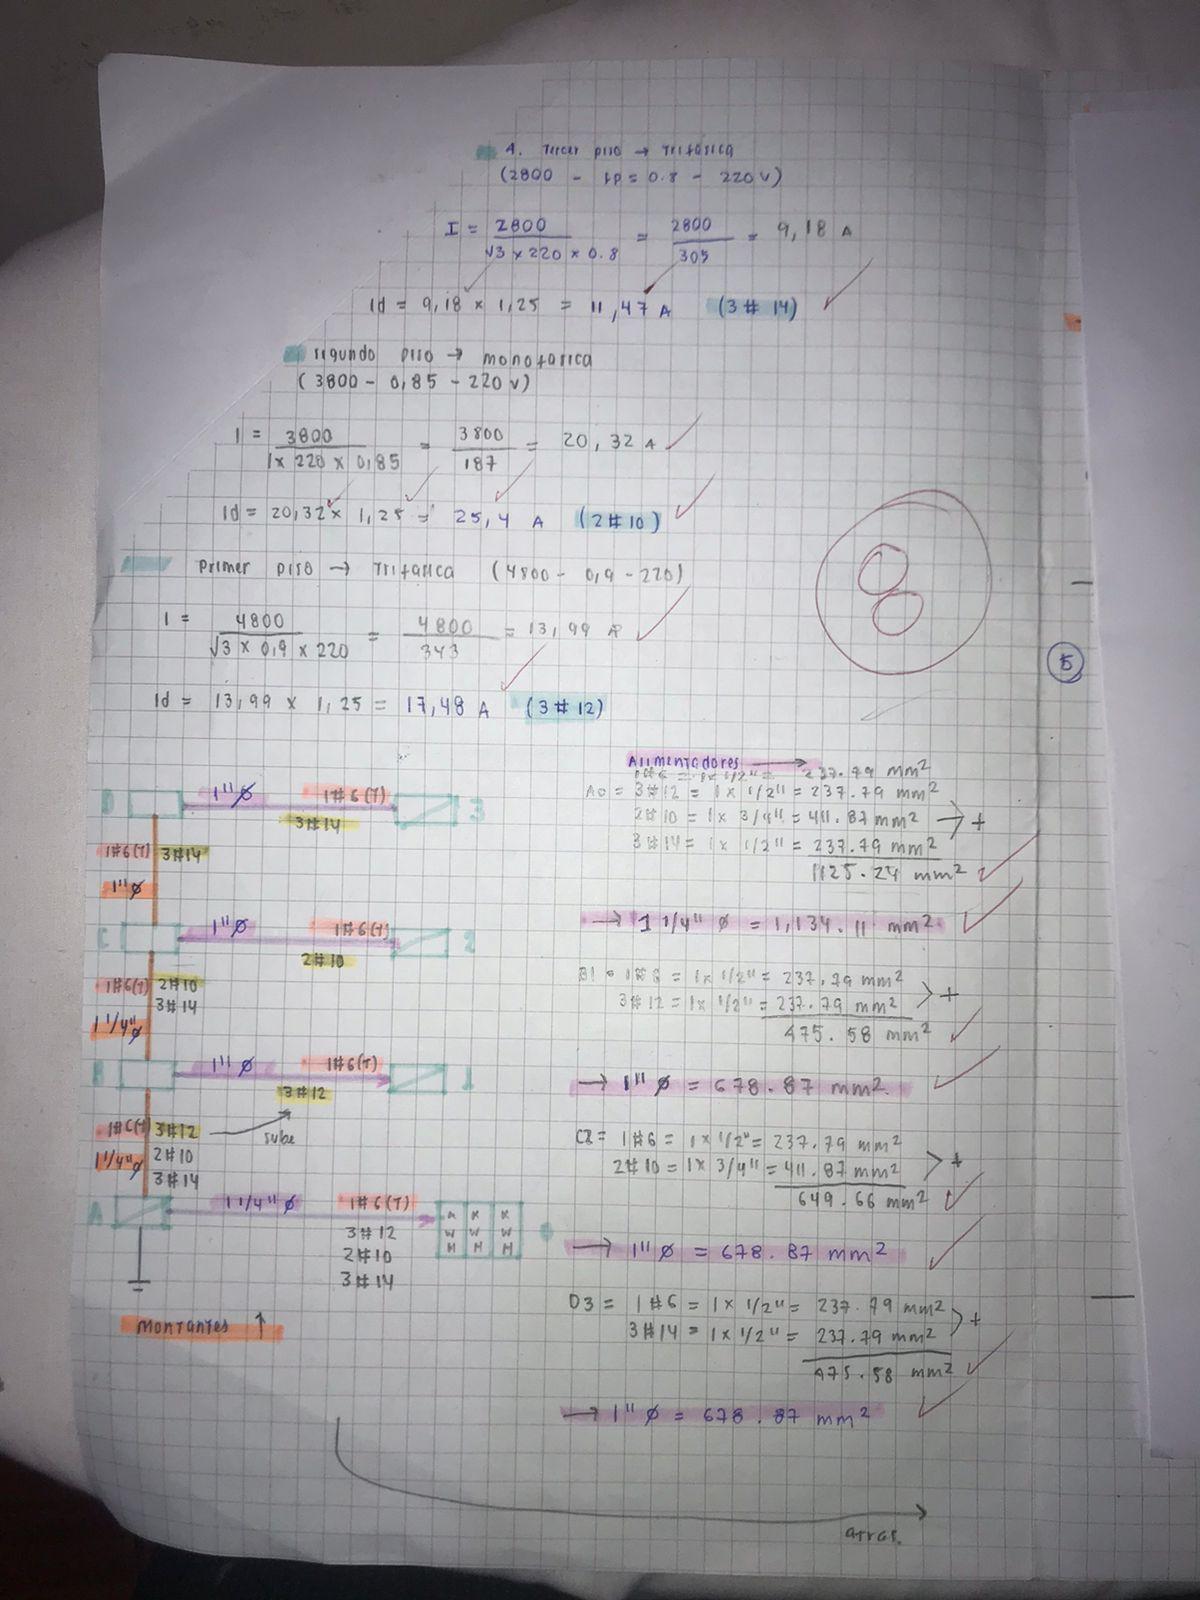 A. Tercer piso → Trifásica
(2800 - fp=0.8 - 220V)
I = 2800 / √3 × 220 × 0.8 = 2800 / 305 = 9,18 A
Id = 9,18 × 1,25 = 11,47 A (3#14)
segundo piso → monofasica
(3800 - 0,85 - 220V)
I = 3800 / 1× 220 × 0,85 = 3800 / 187 = 20,32 A
Id = 20,32 × 1,25 = 25,4 A (2#10)
Primer piso → Trifasica (4800 - 0,9 - 220)
I = 4800 / √3 × 0,9 × 220 = 4800 / 343 = 13,99 A
Id = 13,99 × 1,25 = 17,48 A (3#12)
8
5
D 1"Ø 1#6(T) 3
3#14
1#6(T) 3#14
1"Ø
C 1"Ø 1#6(T) 2
2#10
1#6(T) 2#10
3#14
1 1/4"Ø
B 1"Ø 1#6(T) 1
3#12
1#6(T) 3#12 sube
1 1/4"Ø 2#10
3#14
A 1 1/4"Ø 1#6(T)
3#12
2#10
3#14
K K K
W W W
H H H
Montantes ↑
Alimentadores →
1#6 = 1× 1/2" = 237.79 mm²
A0 = 3#12 = 1× 1/2" = 237.79 mm²
2#10 = 1× 3/4" = 411.87 mm² +
3#14 = 1× 1/2" = 237.79 mm²
1125.24 mm²
→ 1 1/4" Ø = 1,134.11 mm²
B1 = = 1× 1/2" = 237.79 mm²
3#12 = 1× 1/2" = 237.79 mm² +
475.58 mm²
→ 1"Ø = 678.87 mm².
C2 = 1#6 = 1× 1/2" = 237.79 mm²
2#10 = 1× 3/4" = 411.87 mm² +
649.66 mm²
→ 1"Ø = 678.87 mm²
D3 = 1#6 = 1× 1/2" = 237.79 mm²
3#14 = 1× 1/2" = 237.79 mm² +
475.58 mm²
→ 1"Ø = 678.87 mm²
atras.